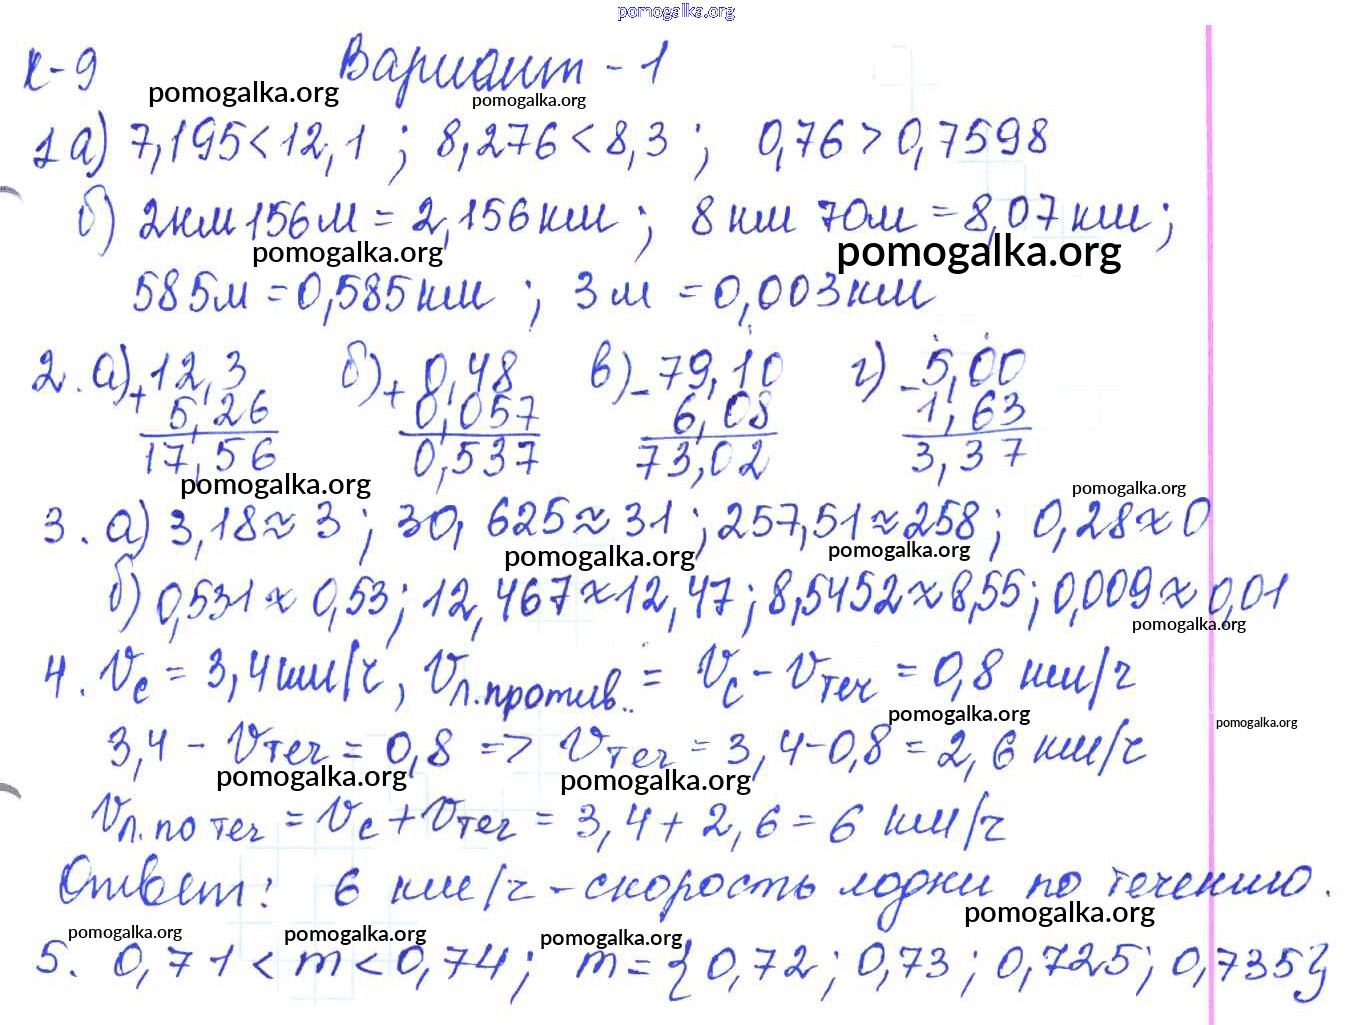 pomogalka.org
К-9 Вариант - 1
pomogalka.org pomogalka.org
1а) 7,195 < 12,1 ; 8,276 < 8,3 ; 0,76 > 0,7598
б) 2км 156м = 2,156 км ; 8 км 70м = 8,07 км ;
pomogalka.org pomogalka.org
585м = 0,585 км ; 3 м = 0,003 км
2. а) + 12,3 б) + 0,48 в) - 79,10 г) - 5,00
5,26 0,057 6,08 1,63
17,56 0,537 73,02 3,37
pomogalka.org pomogalka.org
3. а) 3,18 ≈ 3 ; 30,625 ≈ 31 ; 257,51 ≈ 258 ; 0,28 ≈ 0
pomogalka.org pomogalka.org
б) 0,531 ≈ 0,53 ; 12,467 ≈ 12,47 ; 8,5452 ≈ 8,55 ; 0,009 ≈ 0,01
pomogalka.org
4. Vс = 3,4 км/ч, Vл.против.. = Vс - Vтеч = 0,8 км/ч
pomogalka.org pomogalka.org
3,4 - Vтеч = 0,8 => Vтеч = 3,4-0,8 = 2,6 км/ч
pomogalka.org pomogalka.org
Vл.по теч = Vс + Vтеч = 3,4 + 2,6 = 6 км/ч
Ответ: 6 км/ч - скорость лодки по течению.
pomogalka.org
pomogalka.org pomogalka.org pomogalka.org
5. 0,71 < m < 0,74 ; m = {0,72 ; 0,73 ; 0,725 ; 0,735}